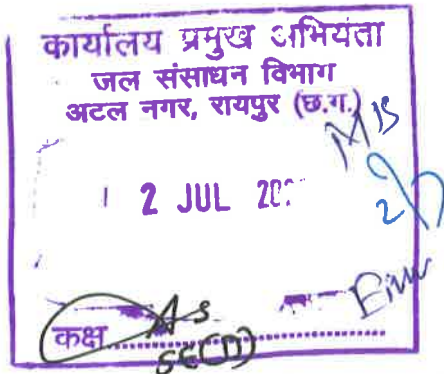 कार्यालय प्रमुख अभियंता
जल संसाधन विभाग
अटल नगर, रायपुर (छ.ग.)
2 JUL
कक्ष
AS
SE(D)